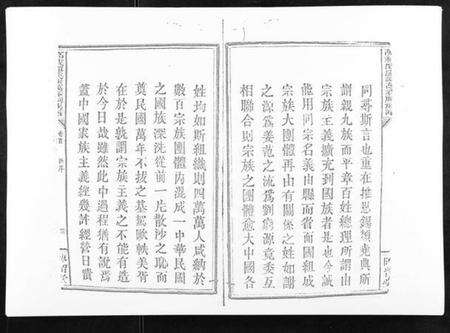 同尋斯言也重在推恩錫類堯典所
謂親九族而平章百姓總理所謂由
宗族主義擴充到國族者是也今誠
能用同宗名義由縣而省而國組成
宗族大團體再由有關係之姓如謝
之源為姜范之流為劉窮源竟委互
相聯合則宗族之團體愈大中國各
姓均如斯組織則四萬萬人咸納於
數百宗族團體而混成一中華民國
之國族深洗從前一片散沙之恥而
奠民國萬年不拔之基歐軼美胥
在於是孰謂宗族主義之不能有造
於今日哉雖然此中過程猶有說焉
蓋中國家族主義經幾許經營日漬
卷首